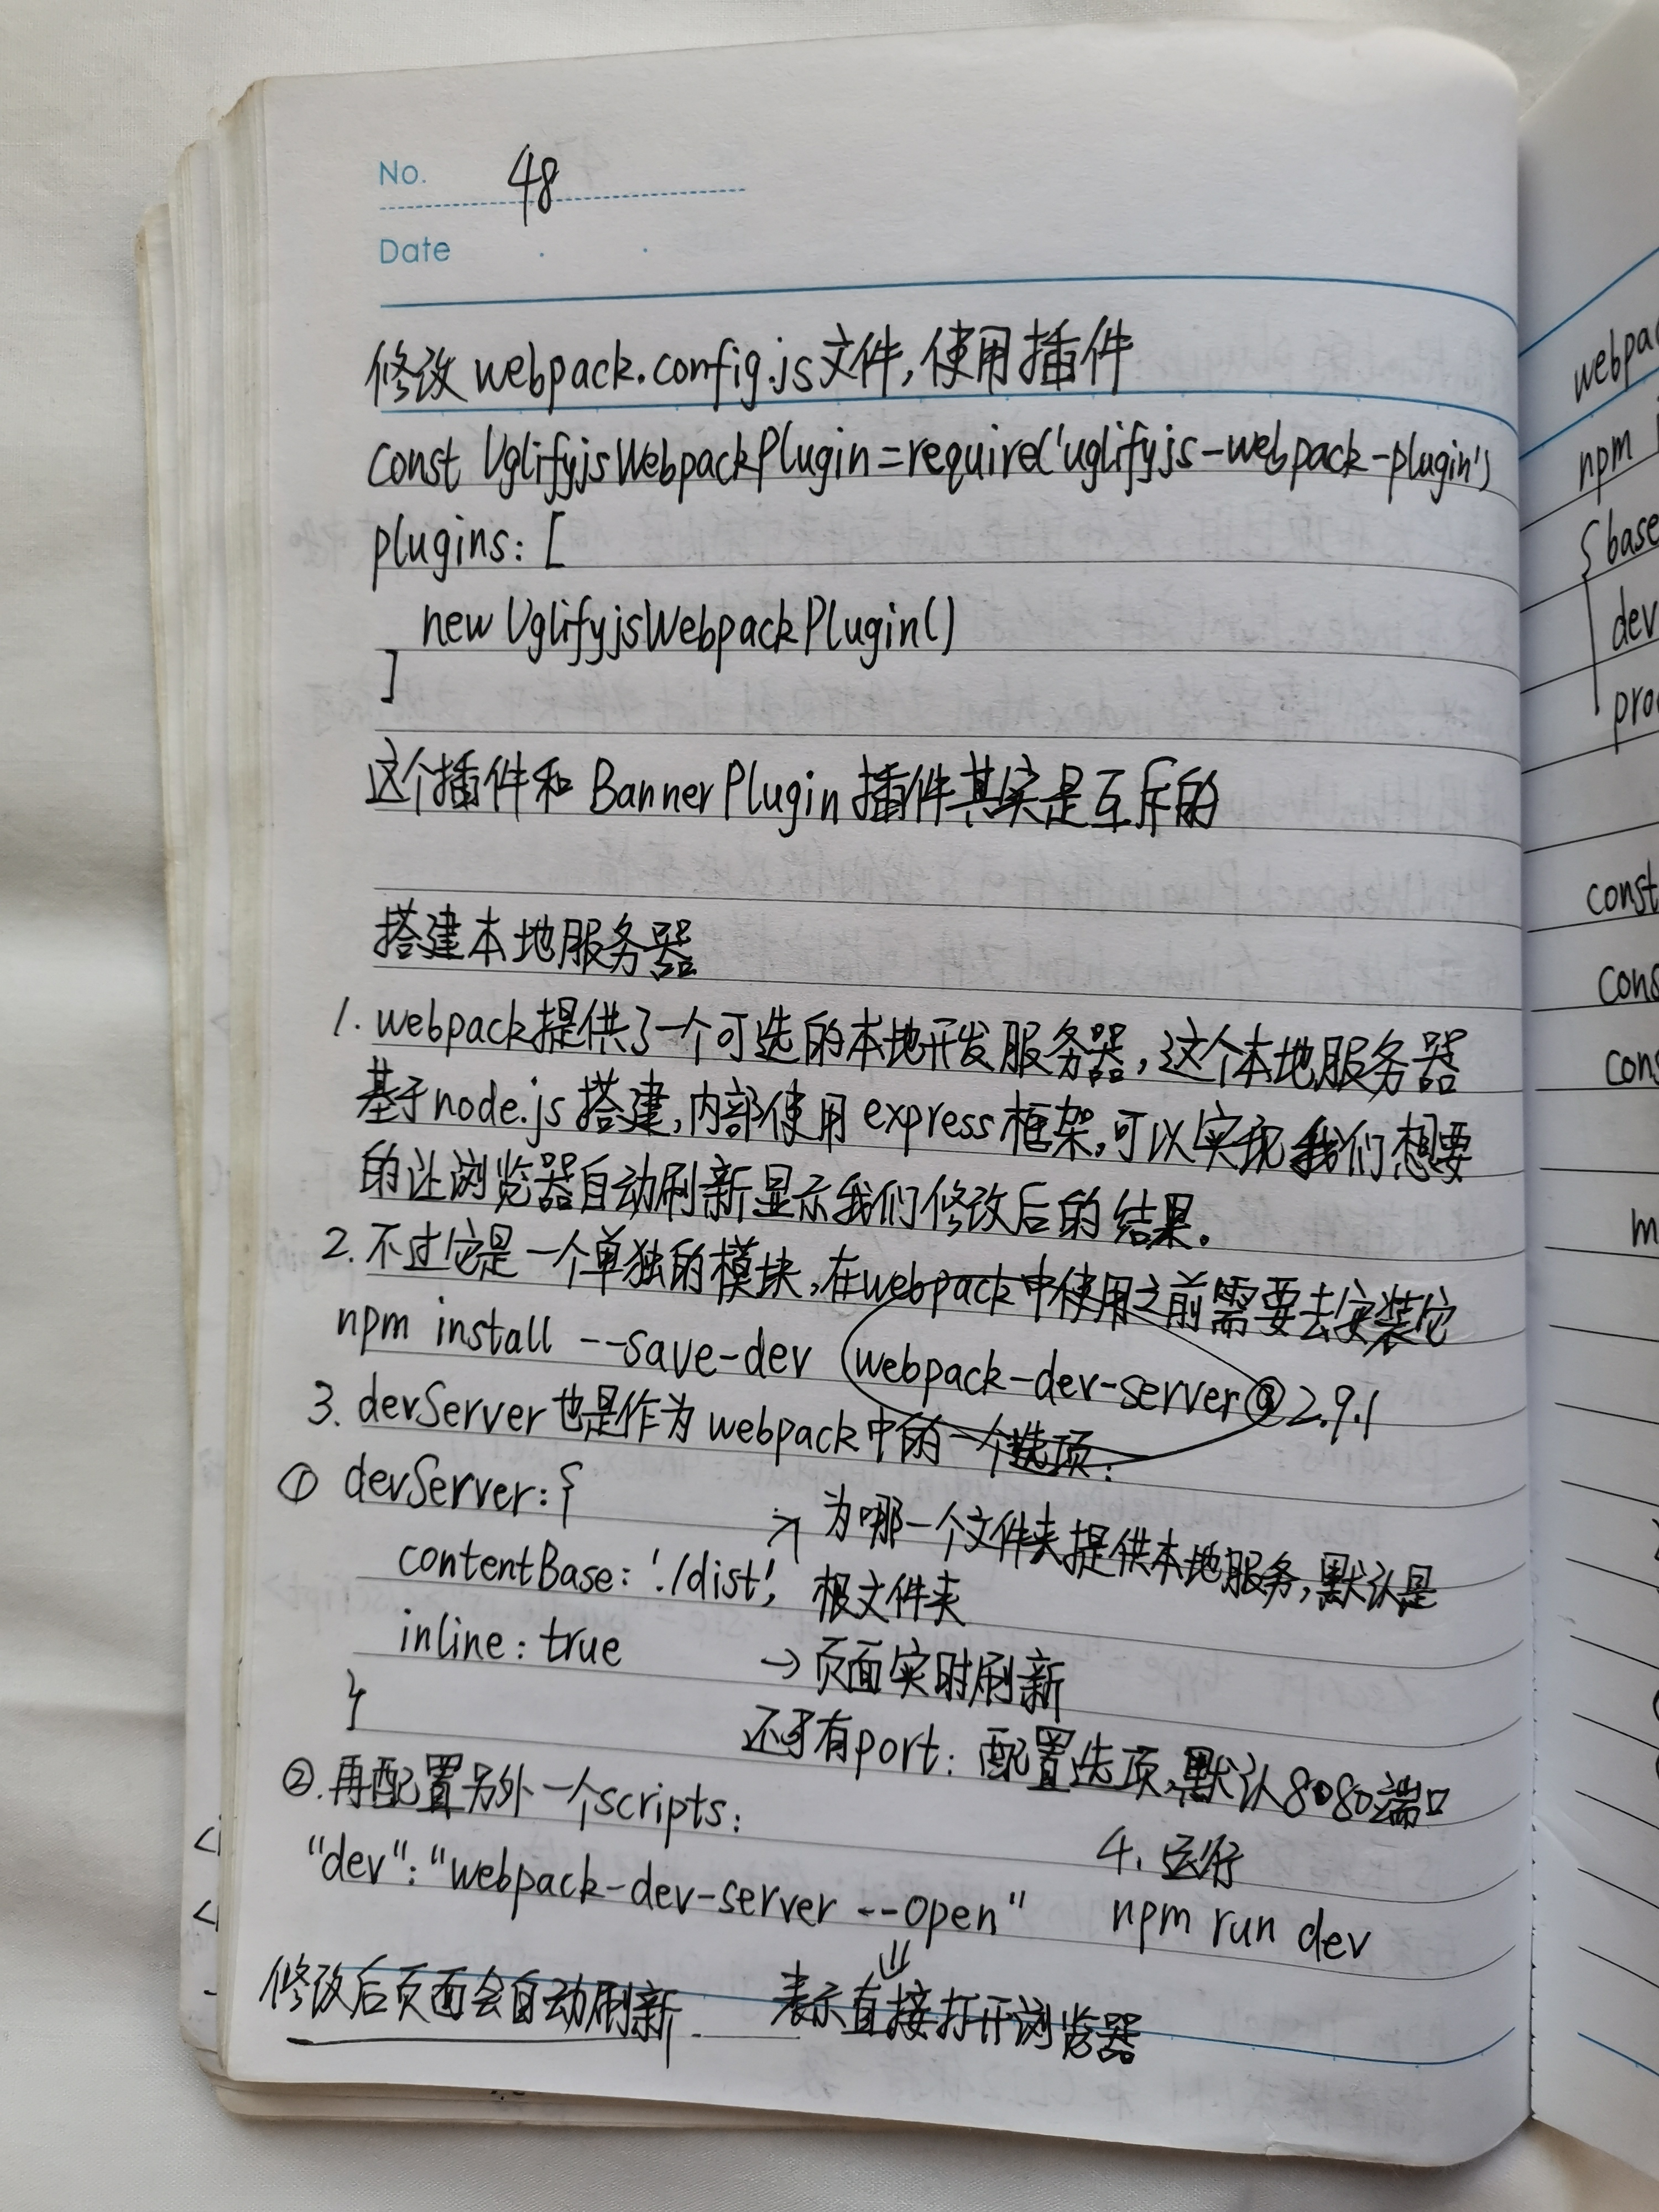 No. 48
Date
修改webpack.config.js文件,使用插件
const UglifyjsWebpackPlugin=require('uglifyjs-webpack-plugin')
plugins: [
new UglifyjsWebpackPlugin()
]
这个插件和 BannerPlugin 插件其实是互斥的
搭建本地服务器
1. webpack提供了一个可选的本地开发服务器,这个本地服务器
基于node.js搭建,内部使用express框架,可以实现我们想要
的让浏览器自动刷新显示我们修改后的结果.
2. 不过它是一个单独的模块,在webpack中使用之前需要去安装它
npm install --save-dev webpack-dev-server@2.9.1
3. devServer也是作为webpack中的一个选项:
① devServer: {
→ 为哪一个文件夹提供本地服务,默认是
contentBase: './dist', 根文件夹
inline: true → 页面实时刷新
}
还有port: 配置选项,默认8080端口
②.再配置另外一个scripts:
4. 运行
"dev": "webpack-dev-server --open" npm run dev
修改后页面会自动刷新 表示直接打开浏览器
webpa
npm
{ base
dev
pro
const
cons
cons
m